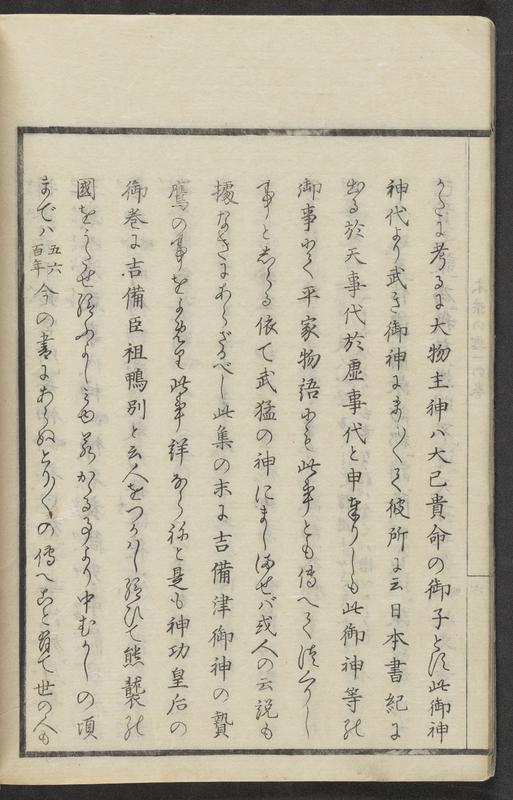 考るに大物主神ハ大己貴命の御子とす此御神
神代より武き御神にまし〳〵て彼所に云日本書紀に
出る於天事代於虚事代と申奉りしも此御神等の
御事にて平家物語にも此事とも傳へて
事と依て武猛の神にましませバ或人の云説も
據なきにあらざるべし此集の末に吉備津御神の贄
鷹の事を此事詳ならねと是も神功皇后の
御巻に吉備臣祖鴨別と云人をつかハし給ひて熊襲の
國を給ふよしかゝる事より中むかしの頃
までハ五六百年今の書にあらぬとり〳〵の傳へこと有て世の人も